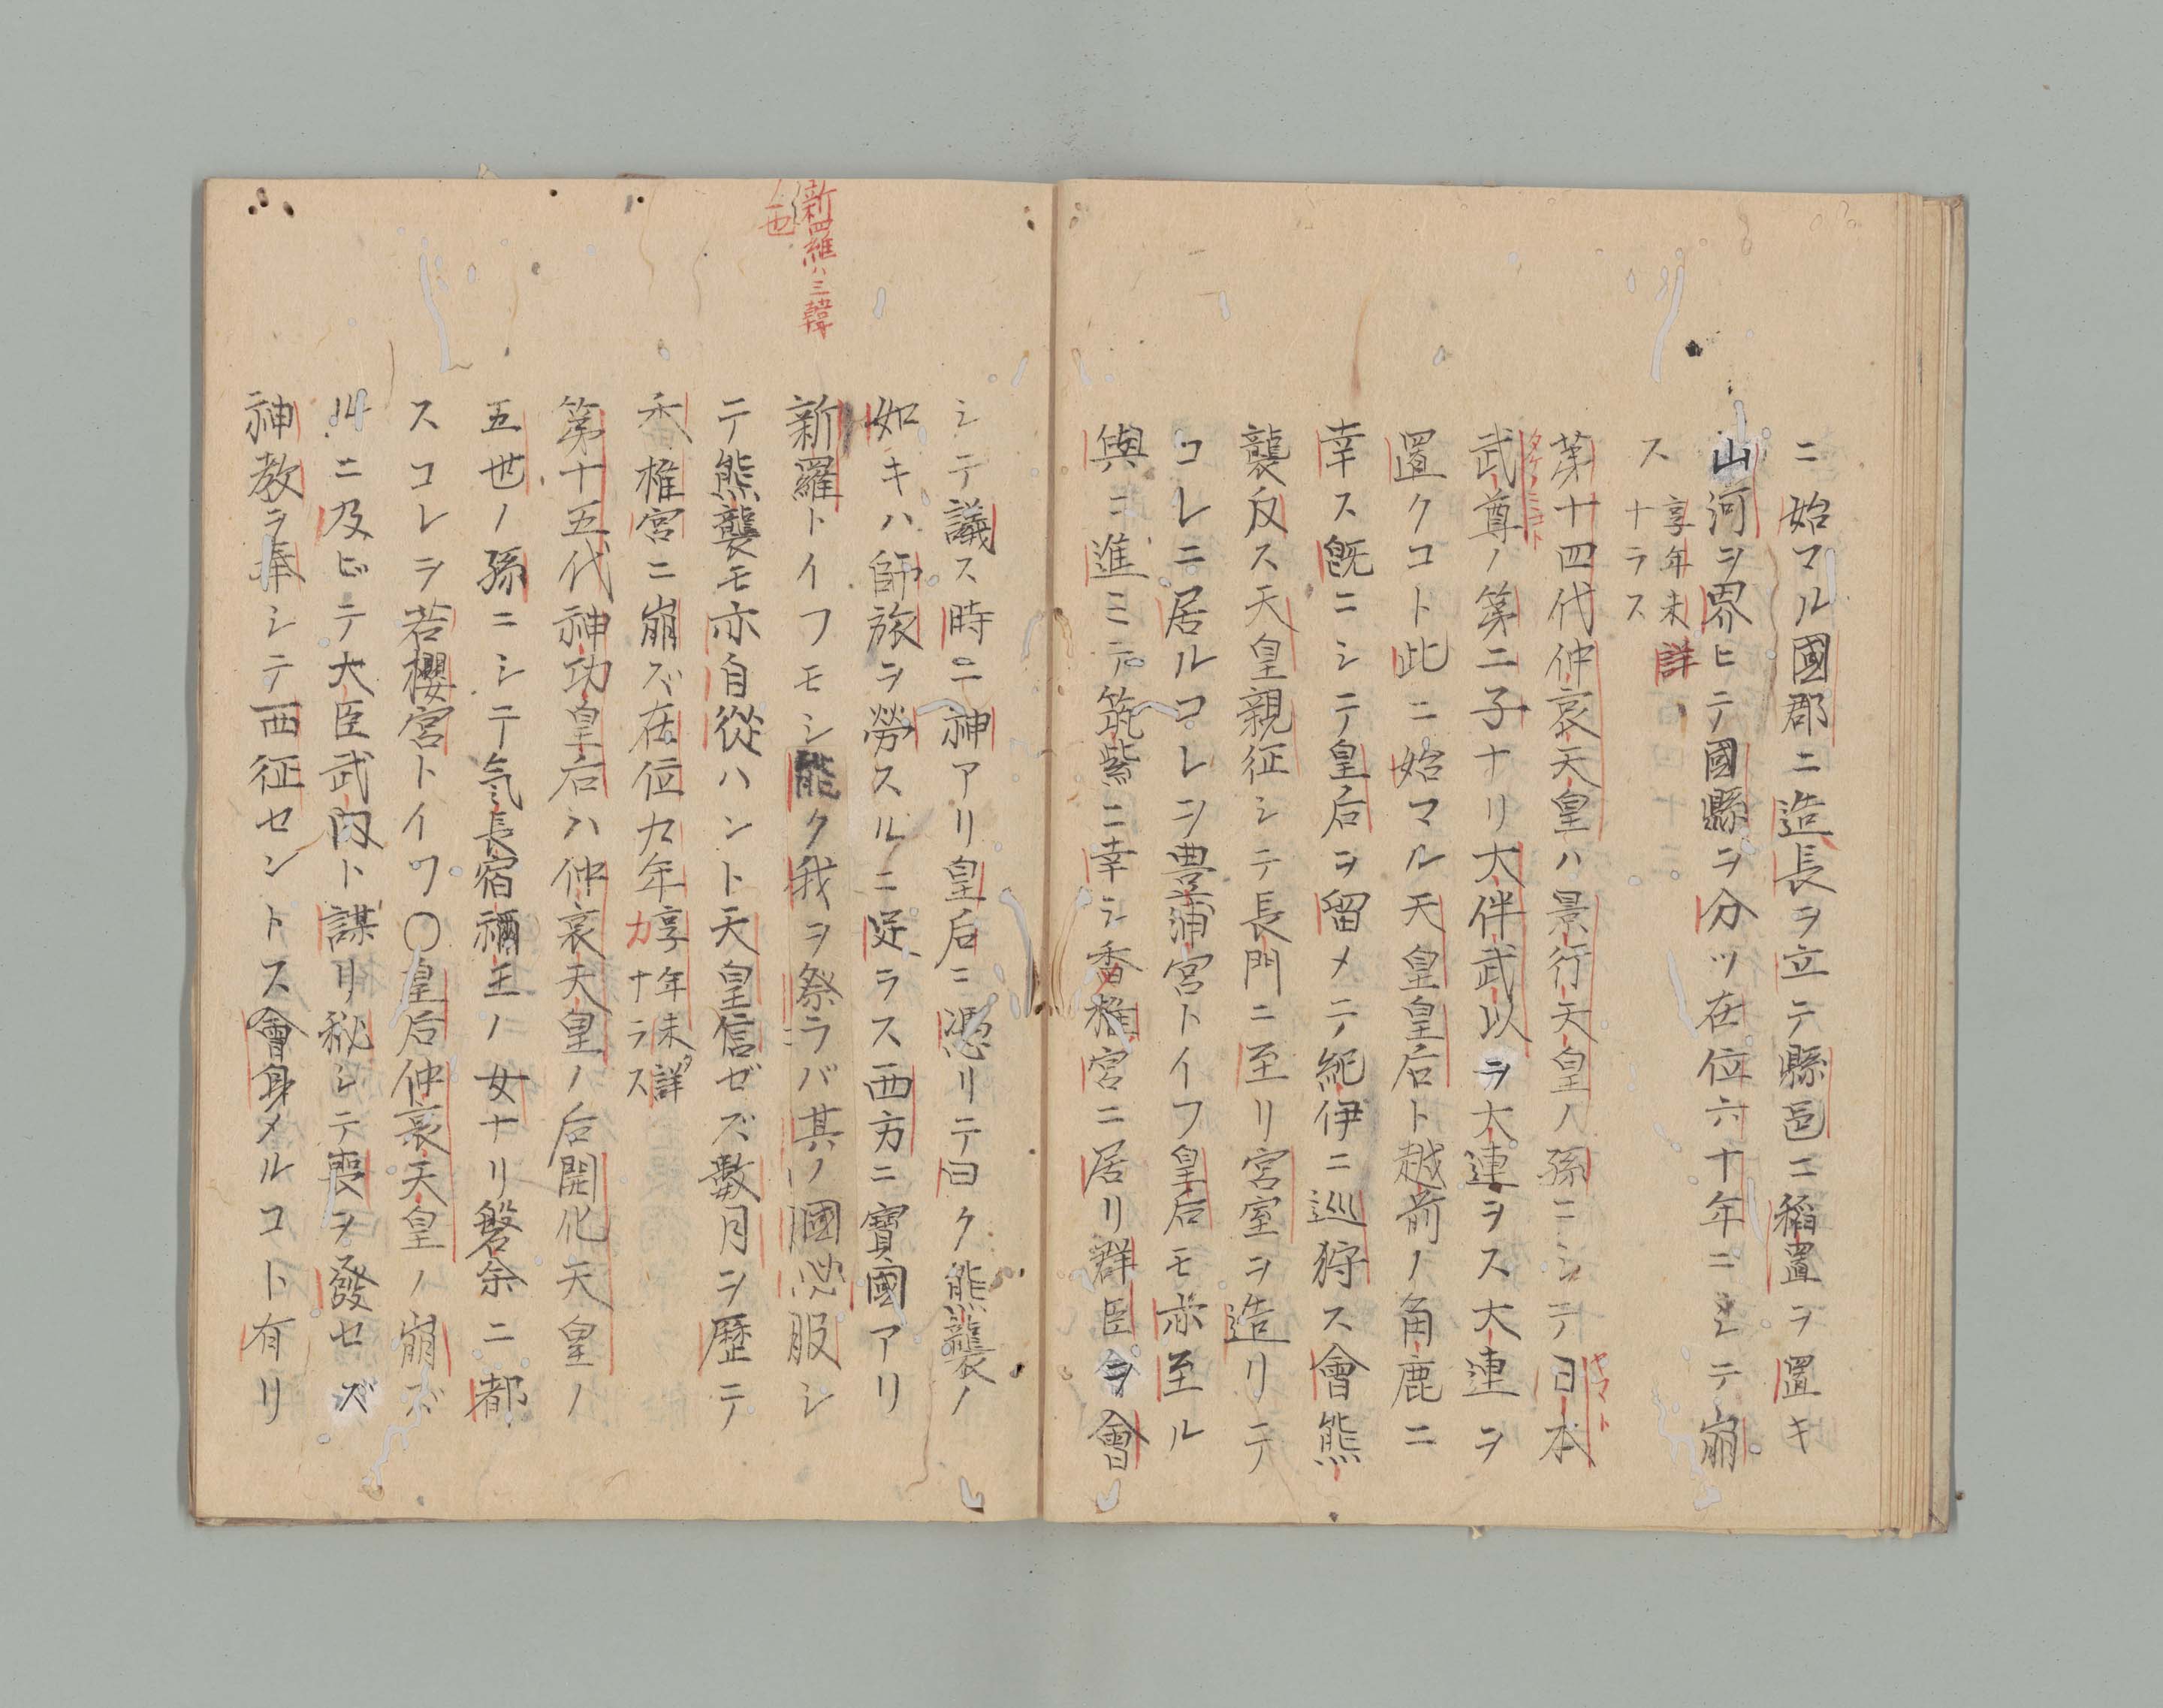 ニ始マル國郡ニ造長ヲ立テ縣邑ニ稲置ヲ置キ
山河ヲ界ヒテ國縣ヲ分ツ在位六十年ニシテ崩
ス享年未詳
ナラス
第十四代仲哀天皇ハ景行天皇ノ孫ニシテ日本
ヤマト
タケノミコト
武尊ノ第二子ナリ大伴武以ヲ大連ヲス大連ヲ
置クコト此ニ始マル天皇皇后ト越前ノ角鹿ニ
幸ス既ニシテ皇后ヲ留メテ紀伊ニ巡狩ス會熊
襲反ス天皇親征シテ長門ニ至リ宮室ヲ造リテ
コレニ居ルコレヲ豊浦宮トイフ皇后モ亦至ル
與ニ進ミテ筑紫ニ幸シ香椎宮ニ居リ群臣ヲ會
シテ議ス時ニ神アリ皇后ニ憑リテ曰ク熊襲ノ
如キハ師旅ヲ勞スルニ足ラス西方ニ寶國アリ
新羅ハ三韓
也
新羅トイフモシ能ク我ヲ祭ラバ其ノ國必服シ
テ熊襲モ亦自從ハント天皇信ゼズ數月ヲ歴テ
香椎宮ニ崩ズ在位九年享年未詳
カナラス
第十五代神功皇后ハ仲哀天皇ノ后開化天皇ノ
五世ノ孫ニシテ気長宿禰王ノ女ナリ磐余ニ都
スコレヲ若櫻宮トイフ〇皇后仲哀天皇ノ崩ズ
ルニ及ビテ大臣武内ト謀リ秘シテ喪ヲ發セズ
神教ヲ奉シテ西征セントス會身メルコト有リ